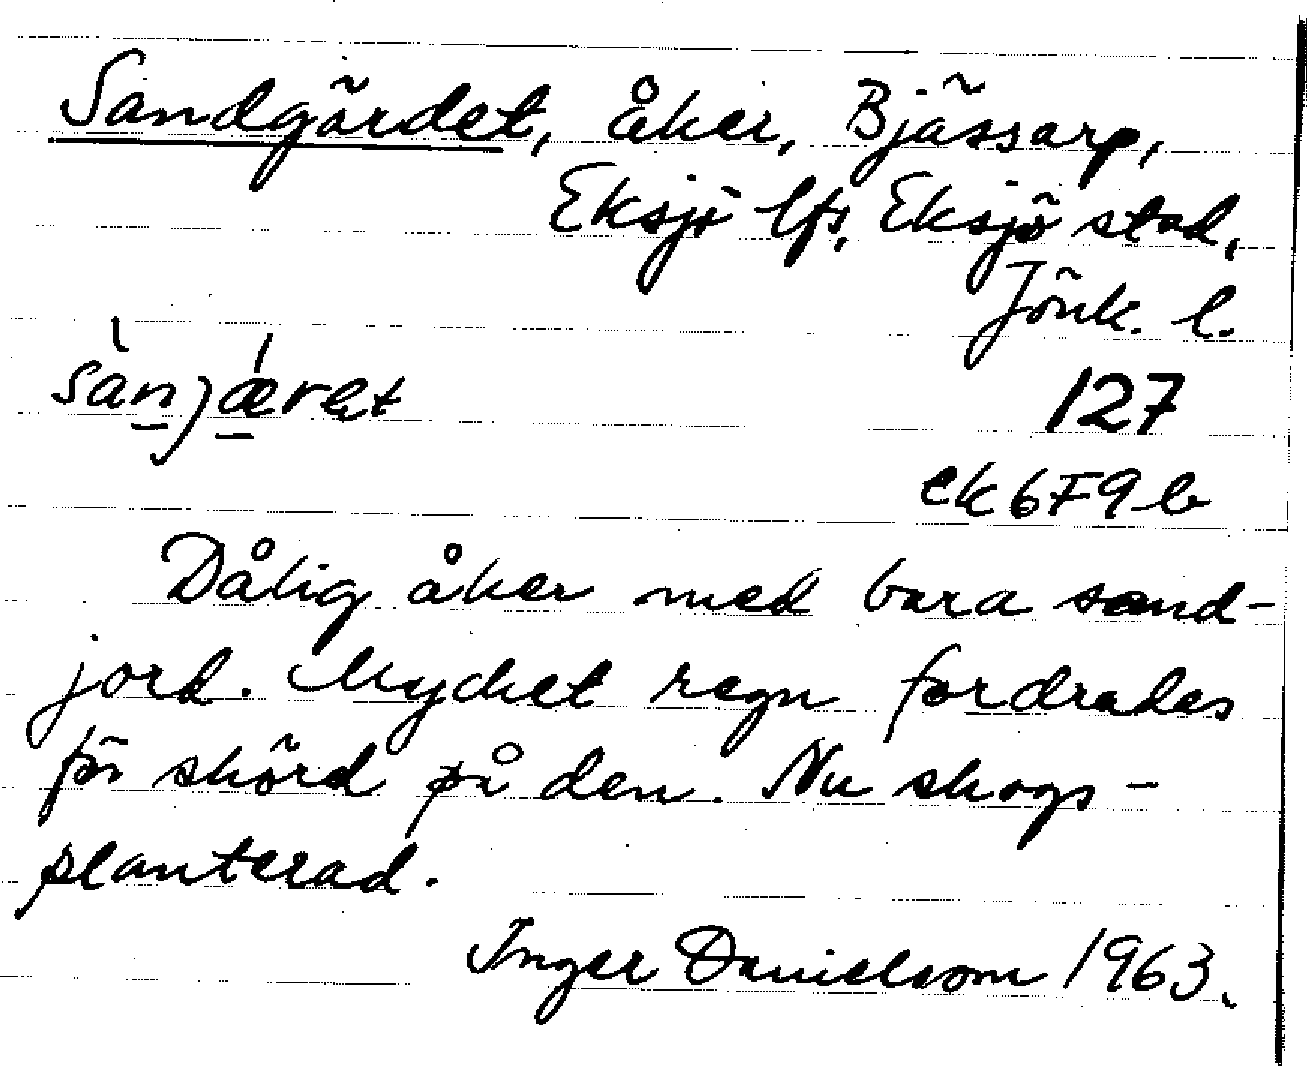 Sandgärdet, åker, Bjässarp,
Eksjö lfs, Eksjö stad,
Jönk. l.
sànjǽret
127
ek 6F9b
Dålig åker med bara sand-
jord. Mycket regn fordrades
för skörd på den. Nu skogs-
planterad.
Inger Danielsson 1963.